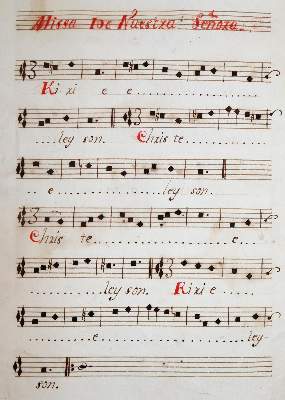 Missa De Nuestra Señora.
Kixi e e
ley son. Chxis te
e ley son.
Chxis te e
ley son. Kixi e
e ley-
son.